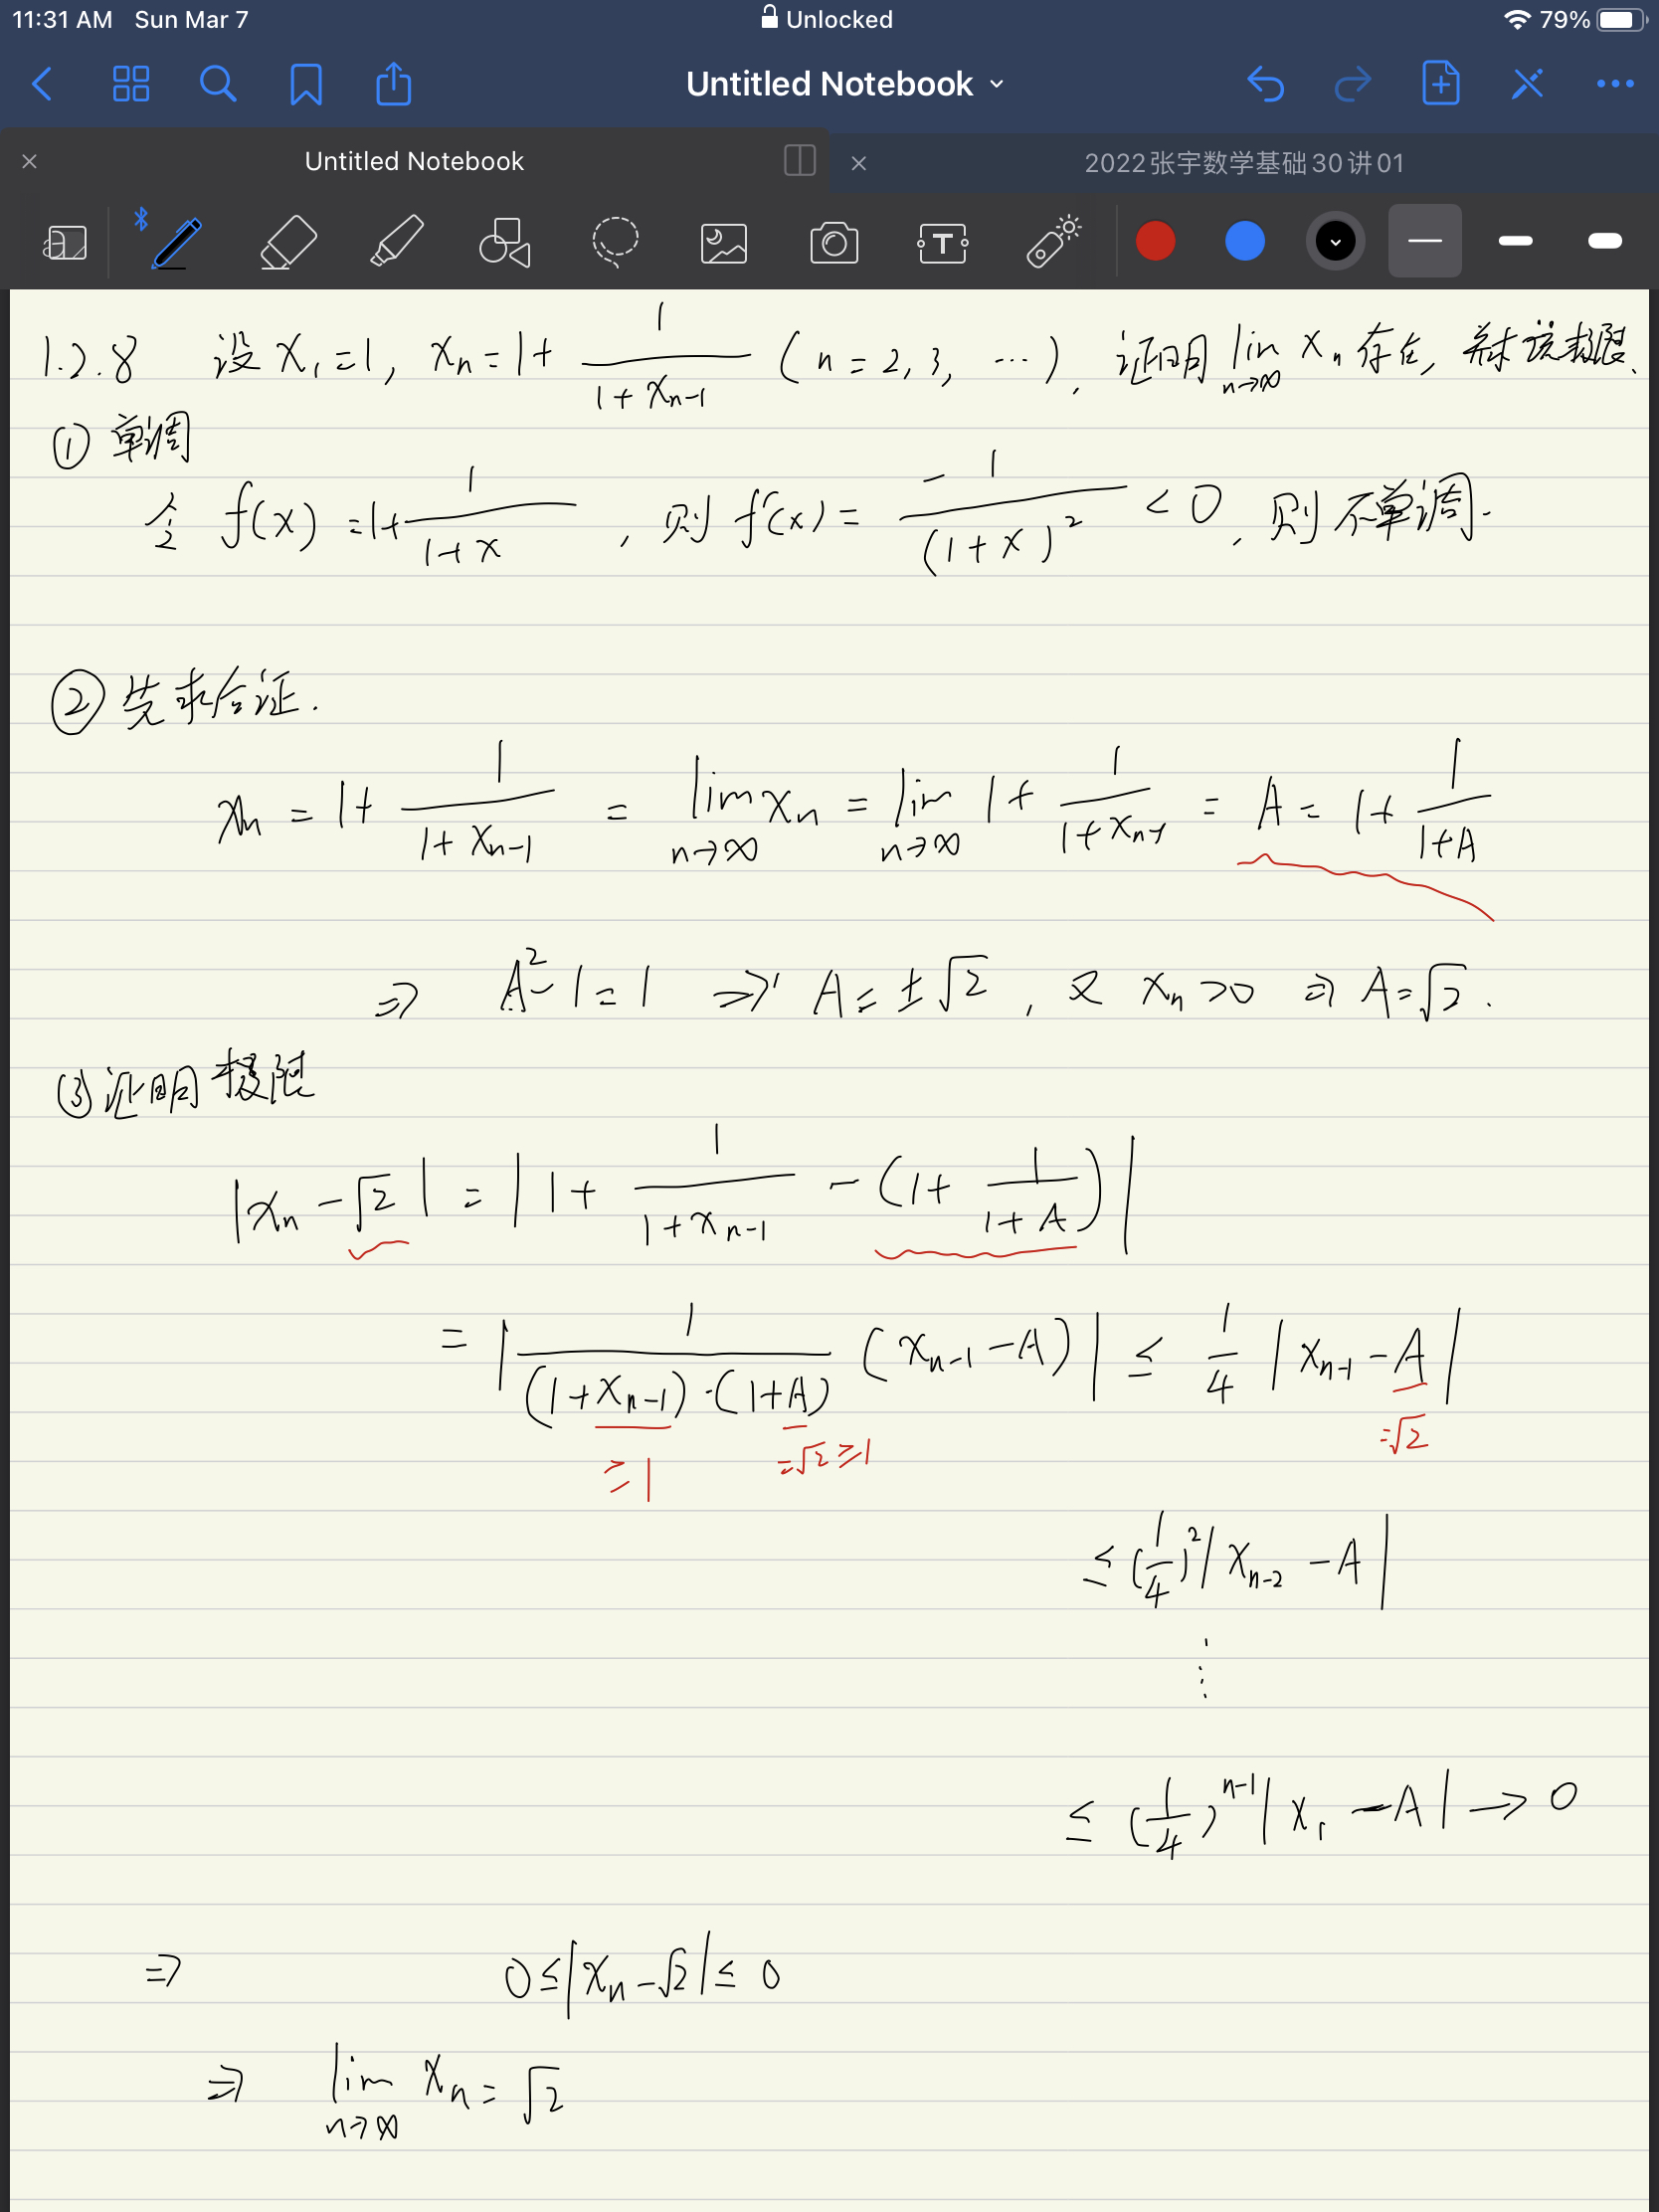 11:31 AM Sun Mar 7 Unlocked 79%
Untitled Notebook
Untitled Notebook 2022张宇数学基础30讲01
1.2.8 设 x₁=1, xₙ=1+1/(1+xₙ₋₁) (n=2,3,…), 证明 lim_{n→∞} xₙ 存在, 并求该极限.
① 单调
令 f(x)=1+1/(1+x), 则 f'(x)=-1/(1+x)² <0, 则不单调.
② 先求后证.
xₙ=1+1/(1+xₙ₋₁) = lim_{n→∞} xₙ = lim_{n→∞} 1+1/(1+xₙ₋₁) = A=1+1/(1+A)
⇒ A²-1=1 ⇒ A=±√2, 又 xₙ>0 ⇒ A=√2.
③ 证明极限
|xₙ-√2| = |1+1/(1+xₙ₋₁) - (1+1/(1+A))|
= |1/((1+xₙ₋₁)·(1+A)) (xₙ₋₁-A)| ≤ 1/4 |xₙ₋₁-A|
≥1 =√2≥1 =√2
≤ (1/4)² |xₙ₋₂-A|
⋮
≤ (1/4)ⁿ⁻¹ |x₁-A| → 0
⇒ 0≤|xₙ-√2|≤0
⇒ lim_{n→∞} xₙ=√2